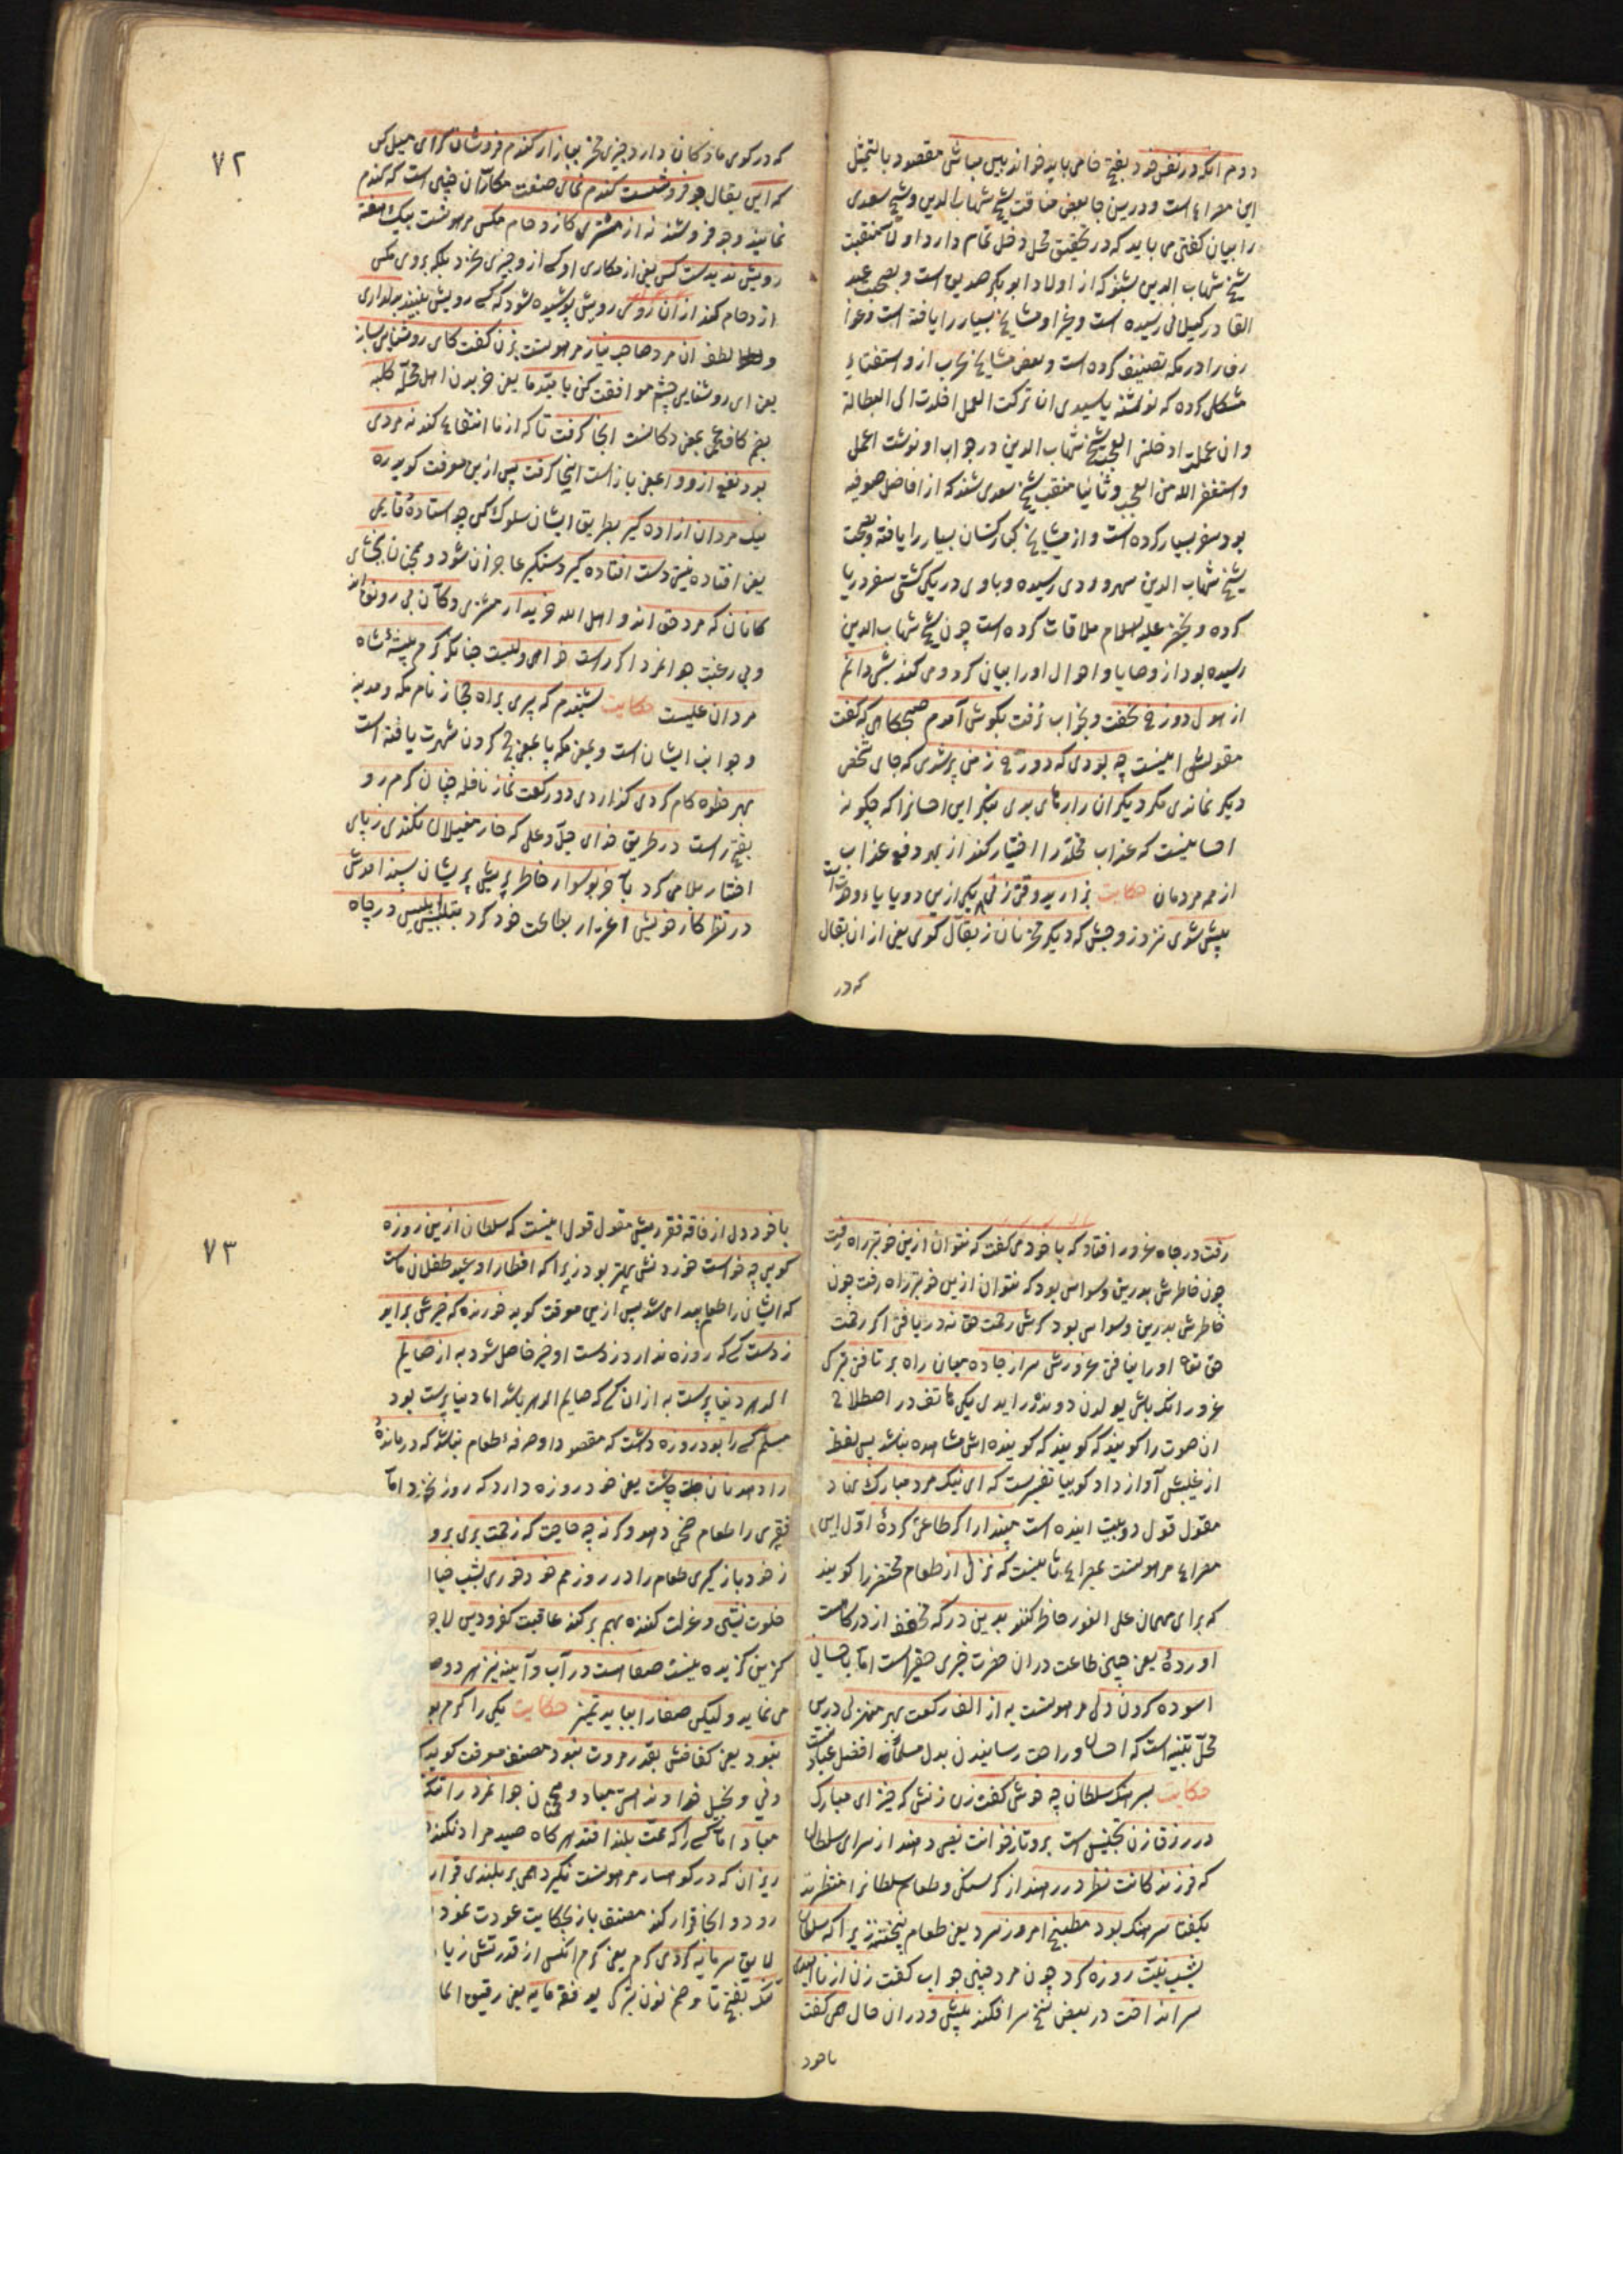 دوم آنکه در نفس خود بفتح خا می باید خواند بدبین مباش مقصود بالتمثیل
این مصراع است و درین جا بعض مناقب شیخ شهاب الدین و شیخ سعدی
را بیان کفتن می باید که در تحقیق محل دخل تمام دارد اولا منقبت
شیخ شهاب الدین بشنو که از اولاد ابو بکر صدیق است و بصحبت عبد
القادر کیلانی رسیده است و بغیر او مشایخ بسیار را یافته است و عوا
رف را در مکه تصنیف کرده است و بعض مشایخ عرب از و استفتاء
مشکل کرده که نوشته یا سیدی ان ترکت العمل اخلدت الی البطالة
و ان عملت ادخلنی العجب شیخ شهاب الدین در جواب او نوشت اعمل
و استغفر الله من العجب و ثانیا منقب شیخ سعدی شنو که از افاضل صوفیه
بود سفر بسیار کرده است و از مشایخ کبار کسان بسیار را یافته و بصحبت
شیخ شهاب الدین سهروردی رسیده و با وی در یکی کشتی سفر دریا
کرده و بخضر علیه السلام ملاقات کرده است چون شیخ شهاب الدین
رسیده بود از وصایا و احوال او را بیان کرد و می کند شبی دانم
از هول دوزخ نخفت و بخواب نرفت بکوش آمدم صبحکاهی که کفت
مقولش اینست چه بودی که دوزخ ز من پر شدی که جای شخص
دیکر نماندی مکر دیکران را رهایی بدی بنکر این احسانرا که چکونه
احسانیست که عذاب مخلد را اختیار کند از بهر دفع عذاب
از همه مردمان حکایت بزارید وقتی زنی یکی ازین دو یا یاء وحدت است
پیش شوی نزد زوجش که دیکر مخر نان ز بقال کوی یعنی از ان بقال
که در
٧٢
که در کوی ما دکان دارد چیزی مخر ببازار کندم فروشان کرای میل کن
که این بقال جو فروشست کندم نمای صنعت مکاران چنین است که کندم
نمایند و جو فروشند نه از مشتری کازدحام مکس مرهونست بیک هفته
رویش ندیدست کس یعنی از مکاری او کسی از و چیزی نخرد بلکه بروی مکس
ازدحام کند از ان روی رویش پوشیده شود که کسی رویش نبیند بدلداری
و لطف ان مرد صاحب نیاز مرهونست بزن کفت کای روشنایی بساز
یعنی ای روشنایی چشم موافقت کن بامید ما یعنی خریدن اهل محله کلبه
بضم کاف عجمی بمعنی دکانست اینجا کرفت تا که از ما انتفاع کند نه مردی
بود نفع ازو وا بمعنی باز است اینجا کرفت پس ازین معرفت کوید ره
نیک مردان ازاده کیر بطریق ایشان سلوک کن چو استاده قایمی
یعنی افتاده نیستی دست افتاده کیر دستکیر عاجزان شو و همچنان ببخشای
کانان که مرد حق اند و اهل الله خریدار مشتری دکان بی رونق اند
و بی رغبت جوانمرد اکر راست خواهی ولیست چنانکه کرم پیشه شاه
مردان علیست حکایت شنیدم که پیری براه حجاز نام مکه و مدینه
و جوانب ایشان است و بمعنی مکه یا بمعنی حج کردن شهرت یافته است
بهر خطوه کام کردی کزاردی دو رکعت نماز نافله چنان کرم رو
بفتح راست در طریق خدای جل و علی که خار مغیلان نکندی ز پای
اختار ملامی کرد بآخر بوسواس خاطر پریش پریشان پسند امدش
در نظر کار خویش اغترار بطاعت خود کرد بتلبیس ابلیس در چاه
رفت در چاه غرور افتاد که با خود می کفت که نتوان ازین خوبتر راه رفت
چون خاطرش بدرین وسواس بود که نتوان ازین خوبتر راه رفت چون
خاطرش بدرین وسواس بود کرش رحمت حق نه دریافتی اکر رحمت
حق تعالی او را نیافتی غرورش سر از جاده میان راه بر تافتی ترکی
غرور انک باشی یولدن دوندررایدی یکی هاتف در اصطلاح
ان صوت را کویند که کویند که کوینده اش مشاهده نباشد پس لفظ
از غیبش آواز داد کوییا تفسیرست که ای نیک مرد مبارک نهاد
مقول قول دو بیت اینده است مپندار اکر طاعتی کردهٔ اول این
مصراع مرهونست بمصراع ثانیست که نزلی از طعام محتضر را کویند
که برای مهمان علی الفور حاضر کنند بدین درکه مخفف از درکاهست
آوردهٔ یعنی چنین طاعت دران حضرت چیزی حقیر است اما باحسانی
اسوده کردن دلی مرهونست به از الف رکعت بهر منزلی درین
محل تنبیه است که احسان و راحت رسانیدن بدل مسلمان افضل عبادتست
حکایت بسرهنک سلطان چه خوش کفت زن زنش که خیز ای مبارک
در رزق زن تجنیس است برو تا ز خوانت نصیبی دهند از سرای سلطان
که فرزندکانت نظر در رهند از کرسنکی و طعام سلطانرا منتظرند
بکفتا سرهنک بود مطبخ امروز سرد یعنی طعام نپختند زیرا که سلطان
بشب نیت روزه کرد چون مرد چنین جواب کفت زن از ناامیدی
سر انداخت در بعض نسخ سرافکند پیش و دران حال همی کفت
باخود
٧٣
با خود دل از فاقه فقر ریش مقول قول اینست که سلطان ازین روزه
کویی چه خواست خوردنش بهتر بود زیرا که افطار او عید طفلان ماست
که ایشان را طعام پیدا می شد پس ازین معرفت کوید خورنده که خیرش براید
ز دست کسی که روزه ندارد ز دست او خیر حاصل شود به از صایم
الدهر دنیا پرست به از ان کسی که صایم الدهر باشد اما دنیا پرست بود
مسلم کسی را بود روزه داشت که مقصود او صرفهٔ طعام نباشد که درماندهٔ
را دهد نان چاشت یعنی خود روزه دارد که روز نخورد اما
فقیری را طعام ضحی دهد وکرنه چه حاجت که زحمت بری برو
ز خود باز کیری طعام را در روز هم خود خوری بشب خیا
خلوت نشین و عزلت کننده بهم بر کند عاقبت کفر و دین
کزین کزیده نیست صفا است در آب و آیینه نیز هر دو
می نماید ولیکن صفارا بباید تمیز حکایت یکی را کرم بو
نبود یعنی کفافش بقدر مروت نبود مصنف معرفت کوید
دنی و بخیل خداوند هستی مباد و همچون جوانمرد را تنک
مباد اما کسی را که همت بلند افتد هر کاه صید مرادنکند
ریزان که در کوهسار مرهونست نکیرد همی بر بلندی قرار
رود و انجا قرار کند مصنف باز بحکایت عودت نمود
لایق سرمایه کردی کرم یعنی کرم انکس از قدرتش زیا
تنک بفتح تا و ضم نون ترکی یوفقه مایه یعنی رقیق الما